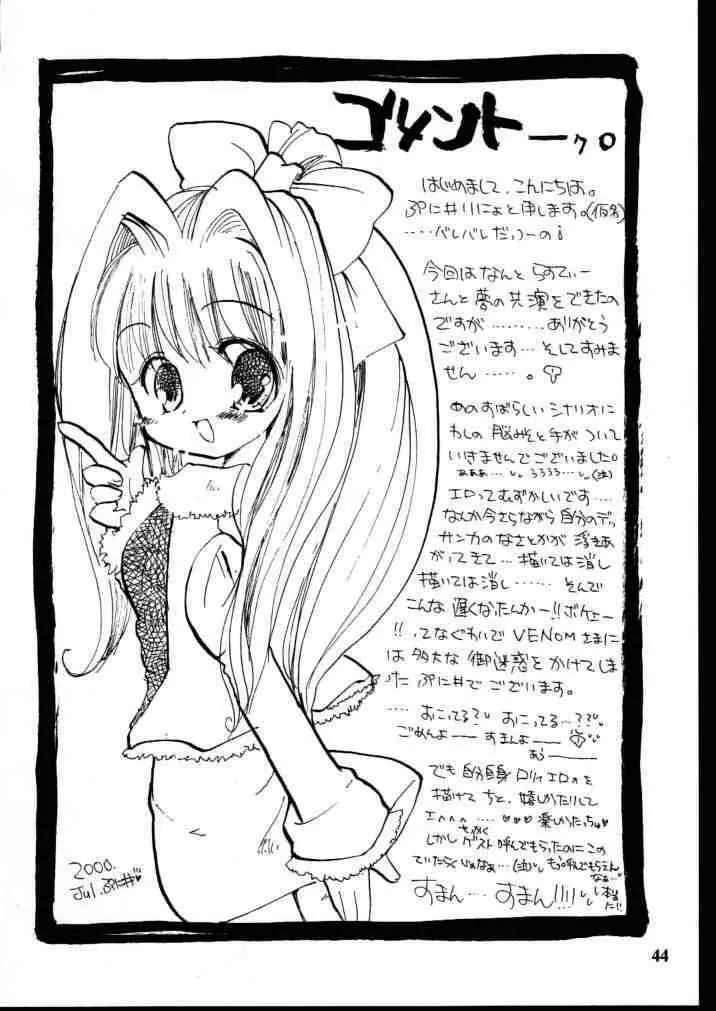 コメントーッ。
はじめまして、こんにちは。
ぷに井りにょと申します。(仮名)
....バレバレだっつーの!
今回はなんと らすてぃー
さんと夢の共演をできたの
ですが.........ありがとう
ございます...そしてすみま
せん......。
あのすばらしいシナリオに
わしの脳みそと手がついて
いきませんでございました。
エロってむずかしいです....
なんか今さらながら自分のデッ
サンカのなさとかが浮きあ
がってきて...描いては消し
描いては消し...... そんで
こんな遅くなったんかー!!ボケェー
!!ってなぐあいで VENOM さまに
は多大な御迷惑をかけてしま
った ぷに井でございます。
....おこってる? おこってる...??
ごめんよー すまんよー
でも自分自身ロリィエロを
描けて ちと、嬉しかたりして
エへへへ.... ♡♡♡ 楽しかたっちゅ
しかしせっかくゲスト呼んでもらったのにこの
すまん... すまん!!!
2000.
Jul. ぷに井
44